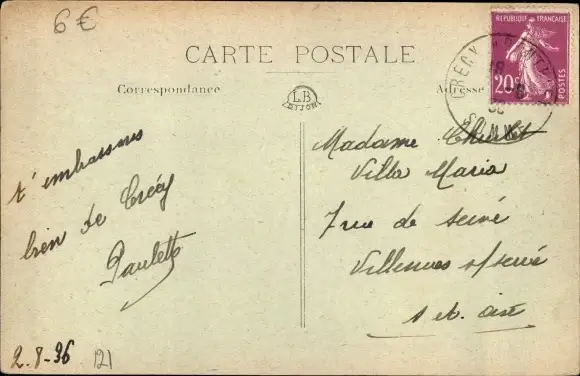 6 €
CARTE POSTALE
Correspondance
LB
DIJON
Adresse
REPUBLIQUE FRANÇAISE
20c
POSTES
CRECY
Madame
Villa Maria
7 rue de seine
Villennes s/seine
s et oise
t'embrassons
bien de Crécy
Paulette
2-8-36
121